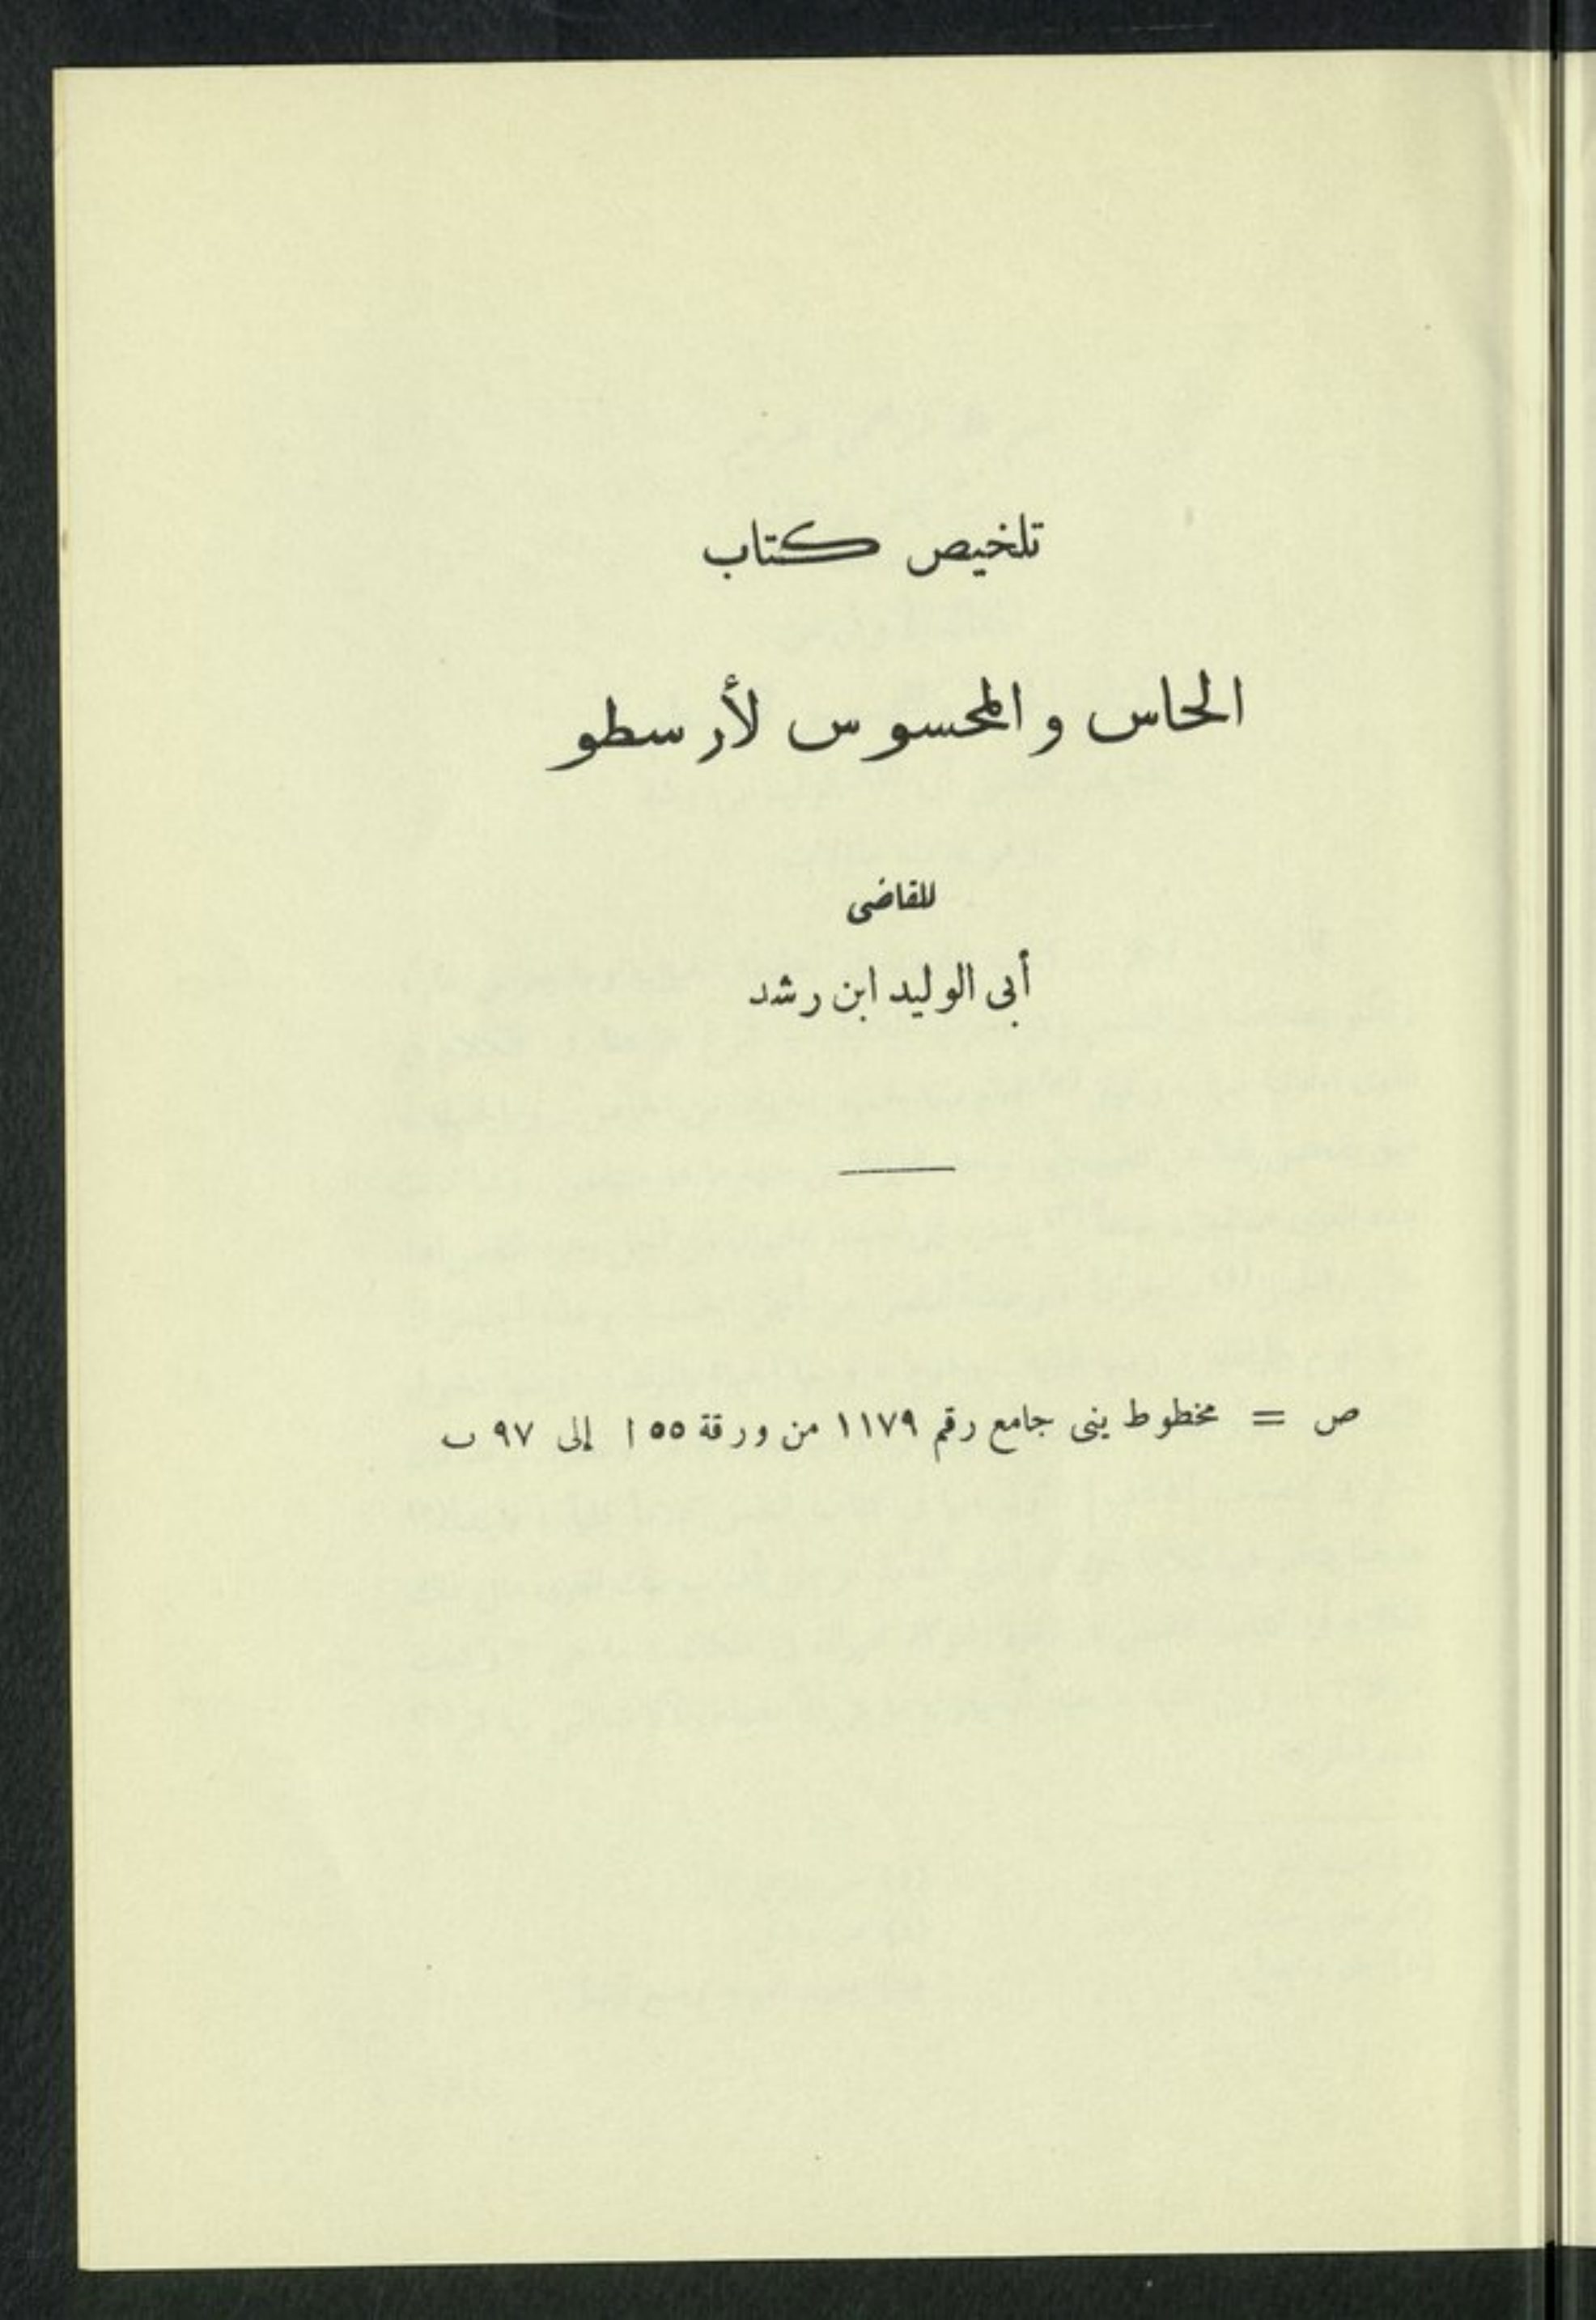 تلخيص كتاب
الحاس والمحسوس لأرسطو
للقاضى
أبى الوليد ابن رشد
ص = مخطوط ينى جامع رقم ١١٧٩ من ورقة ٥٥ ا إلى ٩٧ ب